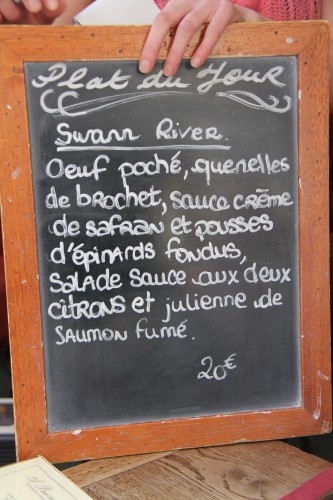 Plat du Jour
Swann River.
Oeuf poché, quenelles
de brochet, sauce crème
de safran et pousses
d'épinards fondus,
Salade sauce aux deux
citrons et julienne de
saumon fumé.
20€